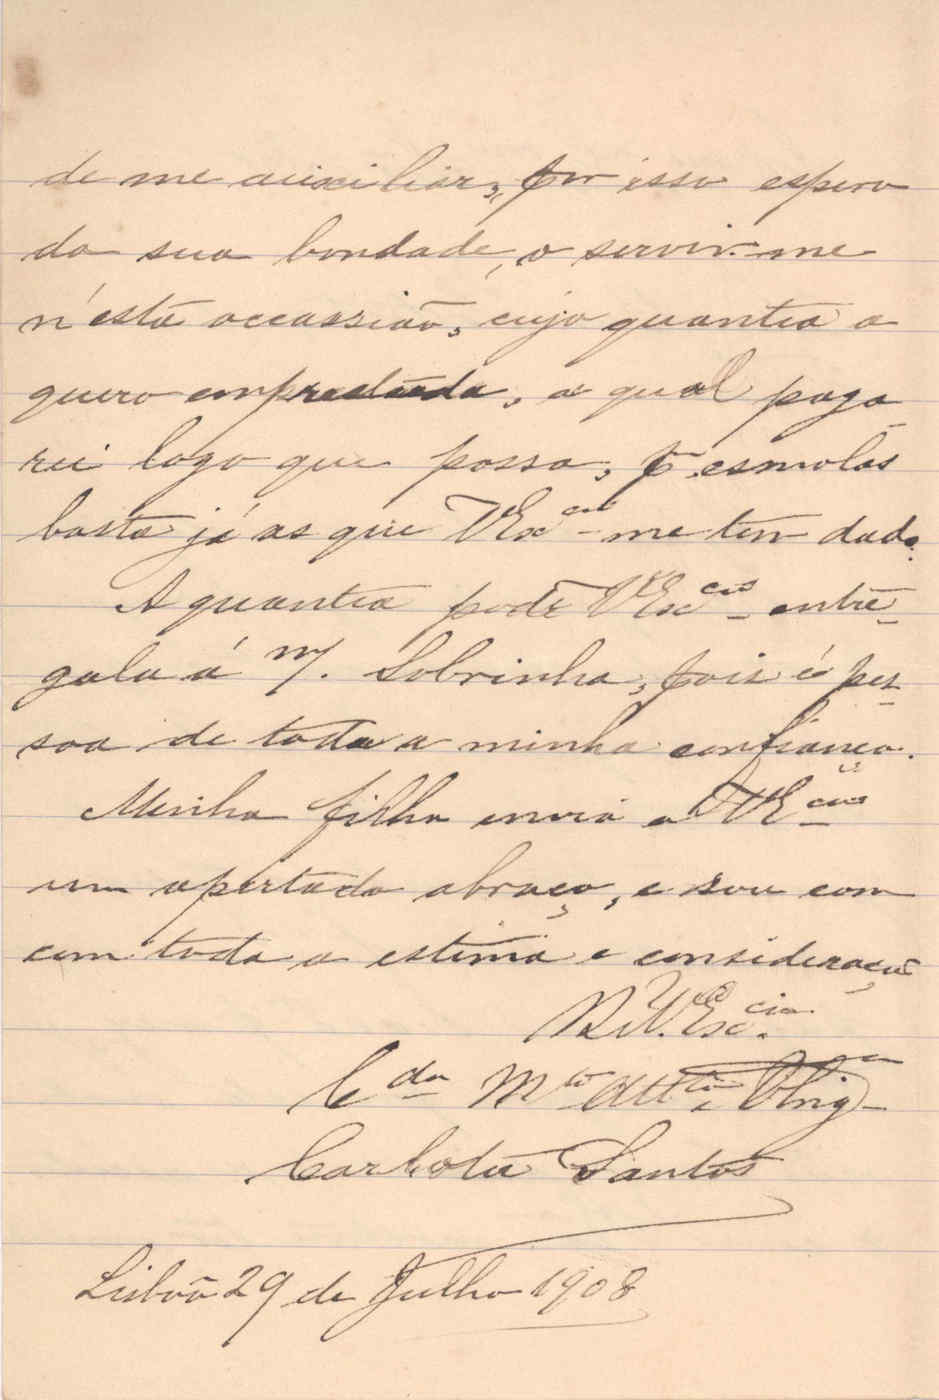 de me auxiliar, por isso espero
da sua bondade, o servir-me
n'esta occassião, cujo quantia a
quero emprestada, a qual paga
rei logo que possa, p. esmolas
basta já as que V Exᶜⁱᵃ me tem dado.
A quantia pode V Exᶜⁱᵃ entre-
gala á m/. Sobrinha, pois é pes-
soa de toda a minha confiança.
Minha filha envia a V Eᶜⁱᵃ
um apertado abraço, e sou com
com toda a estima e consideração
De V. Exᶜⁱᵃ.
Cᵈᵃ Mᵗᵒ Attᵗᵃ e Obrigᵃ
Carlota Santos
Lisbôa 29 de Julho 1908